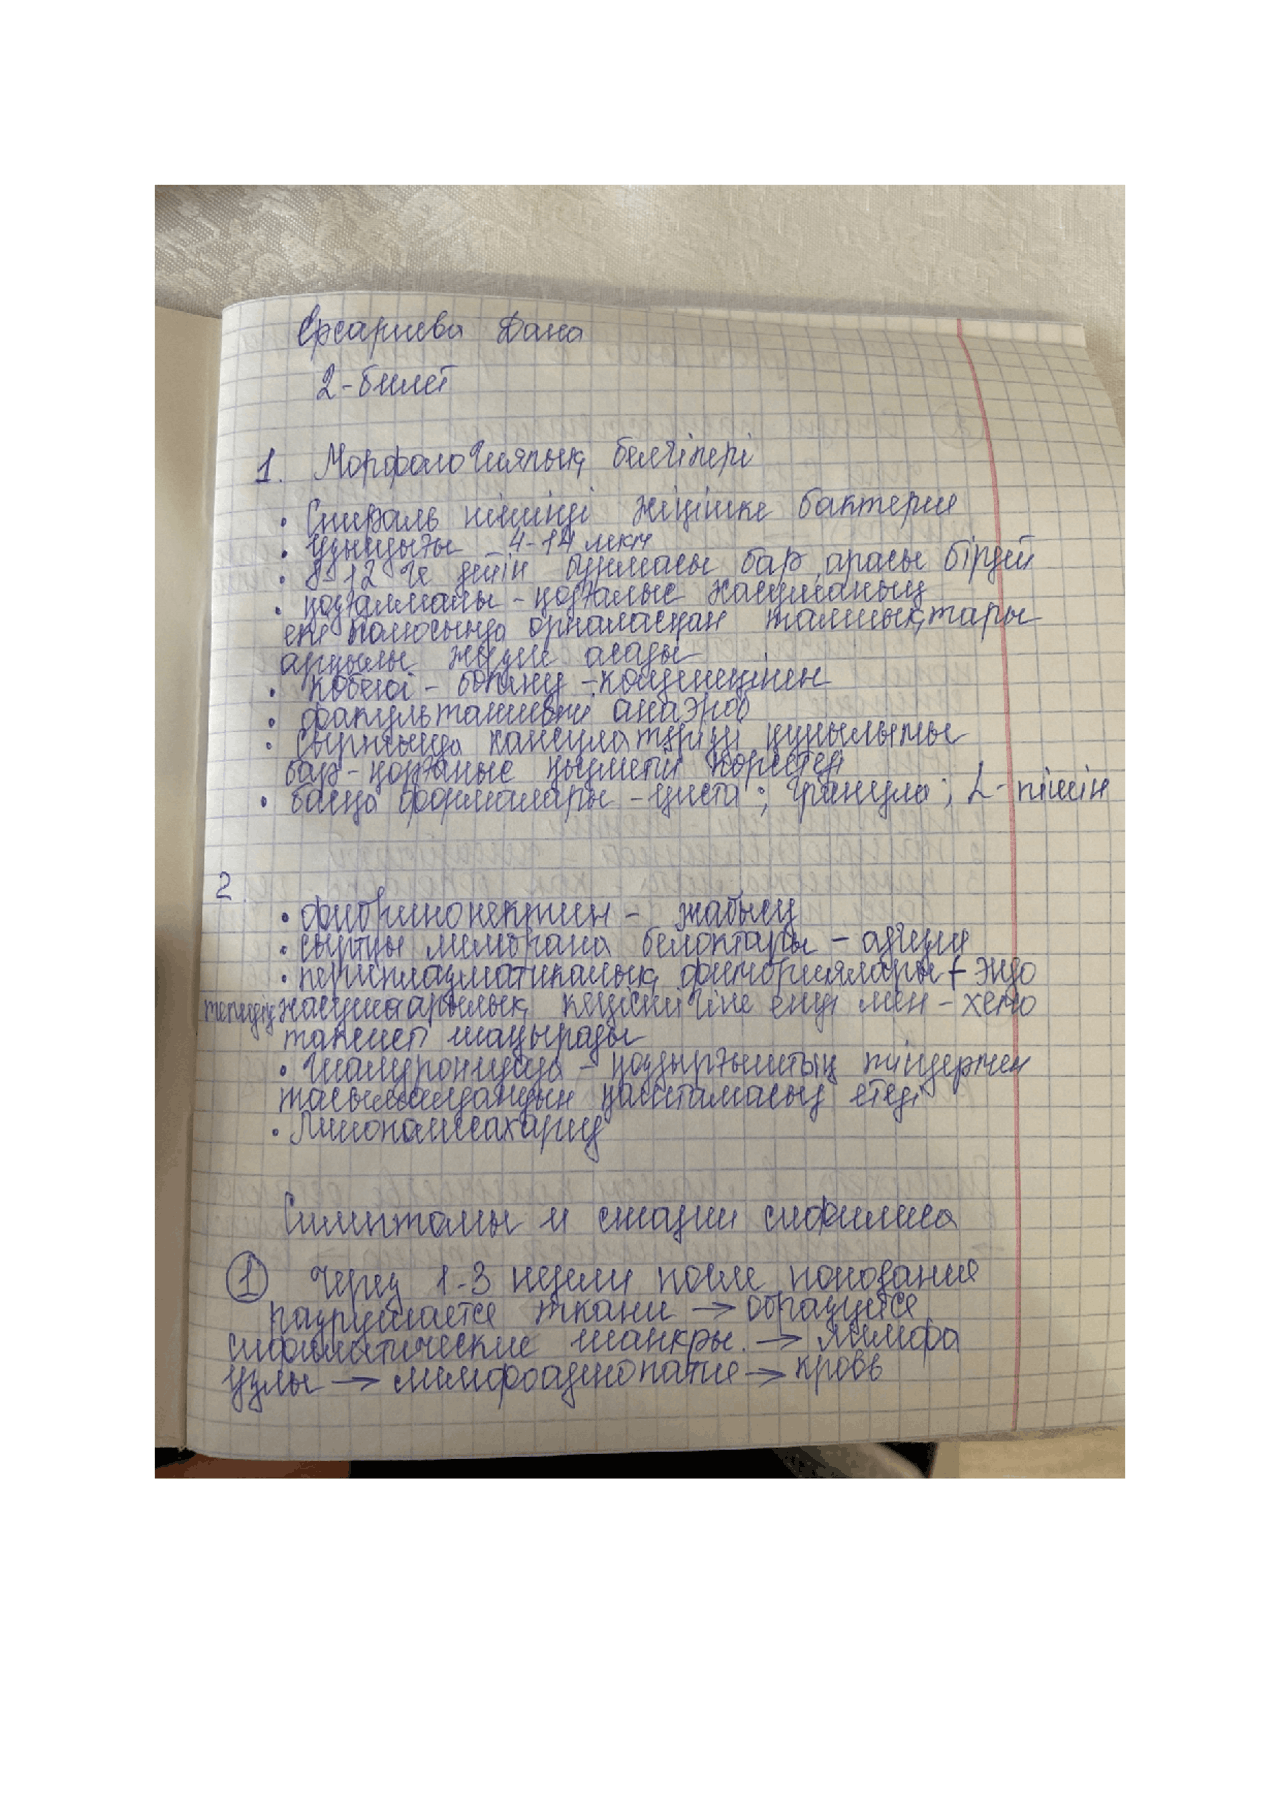 Ерсариева Дана
2-билет
1. Морфологиялық белгілері
• Спираль пішінді жіңішке бактерия
• Ұзындығы - 4-14 мкм
• 8-12 ге дейін бұрмасы бар, арасы бірдей
• қозғалмалы - қозғалыс жасушаның
екі полюсында орналасқан талшықтары
арқылы жүзеге асады
• көбеюі - бөліну - көлденеңінен
• факультативті анаэроб
• Сыртында капсула тәрізді құрылымы
бар - қорғаныс қызметін көрсетеді
• басқа формалары - циста; гранула; L-пішін
2.
• фибринонектин - жабысу
• сыртқы мембрана белоктары - адгезия
• периплазматикалық фимбриялары + эндо
жасушаарылық кеңістігіне енуі мен - хемо
таксист шақырады
• Гиалуронидаза - қоздырғыштың тіндермен
қамтамасыз етеді
• Липополисахарид
Симптомы и стадии сифилиса
① Через 1-3 недели после попадания
разрушается ткани → образуется
сифилитические шанкры. → лимфа
узлы → лимфоаденопатия → кровь